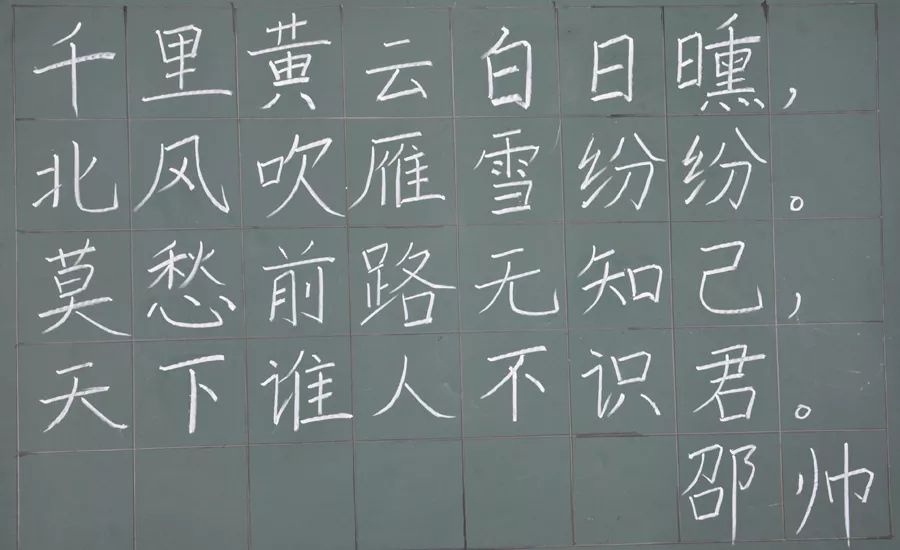 千里黄云白日曛，
北风吹雁雪纷纷。
莫愁前路无知己，
天下谁人不识君。
邵帅